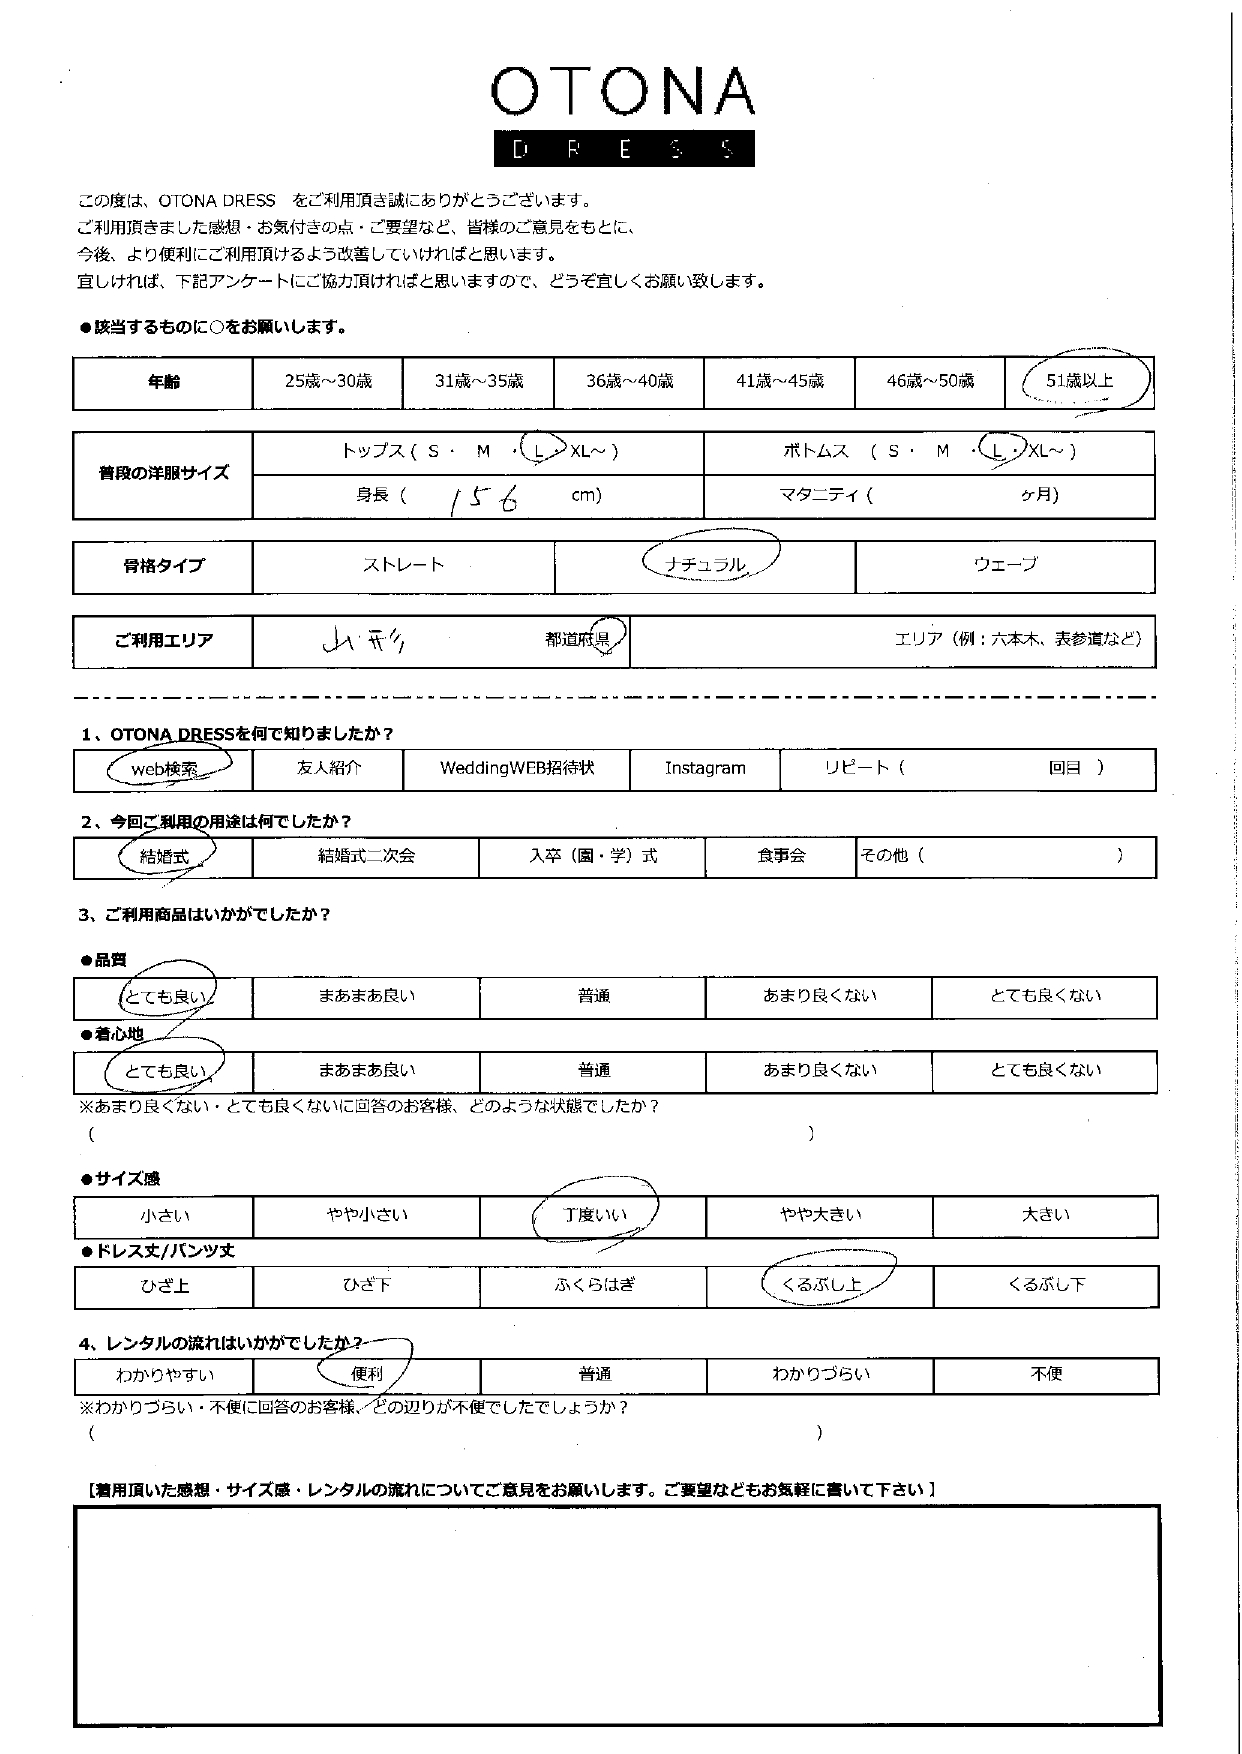 OTONA
DRESS
この度は、OTONA DRESS　をご利用頂き誠にありがとうございます。
ご利用頂きました感想・お気付きの点・ご要望など、皆様のご意見をもとに、
今後、より便利にご利用頂けるよう改善していければと思います。
宜しければ、下記アンケートにご協力頂ければと思いますので、どうぞ宜しくお願い致します。
●該当するものに○をお願いします。
年齢 25歳～30歳 31歳～35歳 36歳～40歳 41歳～45歳 46歳～50歳 51歳以上
普段の洋服サイズ トップス ( S ・ M ・ L ・ XL～ ) ボトムス ( S ・ M ・ L ・ XL～ )
身長 ( 156 cm) マタニティ ( ヶ月)
骨格タイプ ストレート ナチュラル ウェーブ
ご利用エリア 山形 都道府県 エリア（例：六本木、表参道など）
1、OTONA DRESSを何で知りましたか？
web検索 友人紹介 WeddingWEB招待状 Instagram リピート ( 回目 )
2、今回ご利用の用途は何でしたか？
結婚式 結婚式二次会 入卒（園・学）式 食事会 その他 ( )
3、ご利用商品はいかがでしたか？
●品質
とても良い まあまあ良い 普通 あまり良くない とても良くない
●着心地
とても良い まあまあ良い 普通 あまり良くない とても良くない
※あまり良くない・とても良くないに回答のお客様、どのような状態でしたか？
( )
●サイズ感
小さい やや小さい 丁度いい やや大きい 大きい
●ドレス丈/パンツ丈
ひざ上 ひざ下 ふくらはぎ くるぶし上 くるぶし下
4、レンタルの流れはいかがでしたか？
わかりやすい 便利 普通 わかりづらい 不便
※わかりづらい・不便に回答のお客様、どの辺りが不便でしたでしょうか？
( )
【着用頂いた感想・サイズ感・レンタルの流れについてご意見をお願いします。ご要望などもお気軽に書いて下さい】